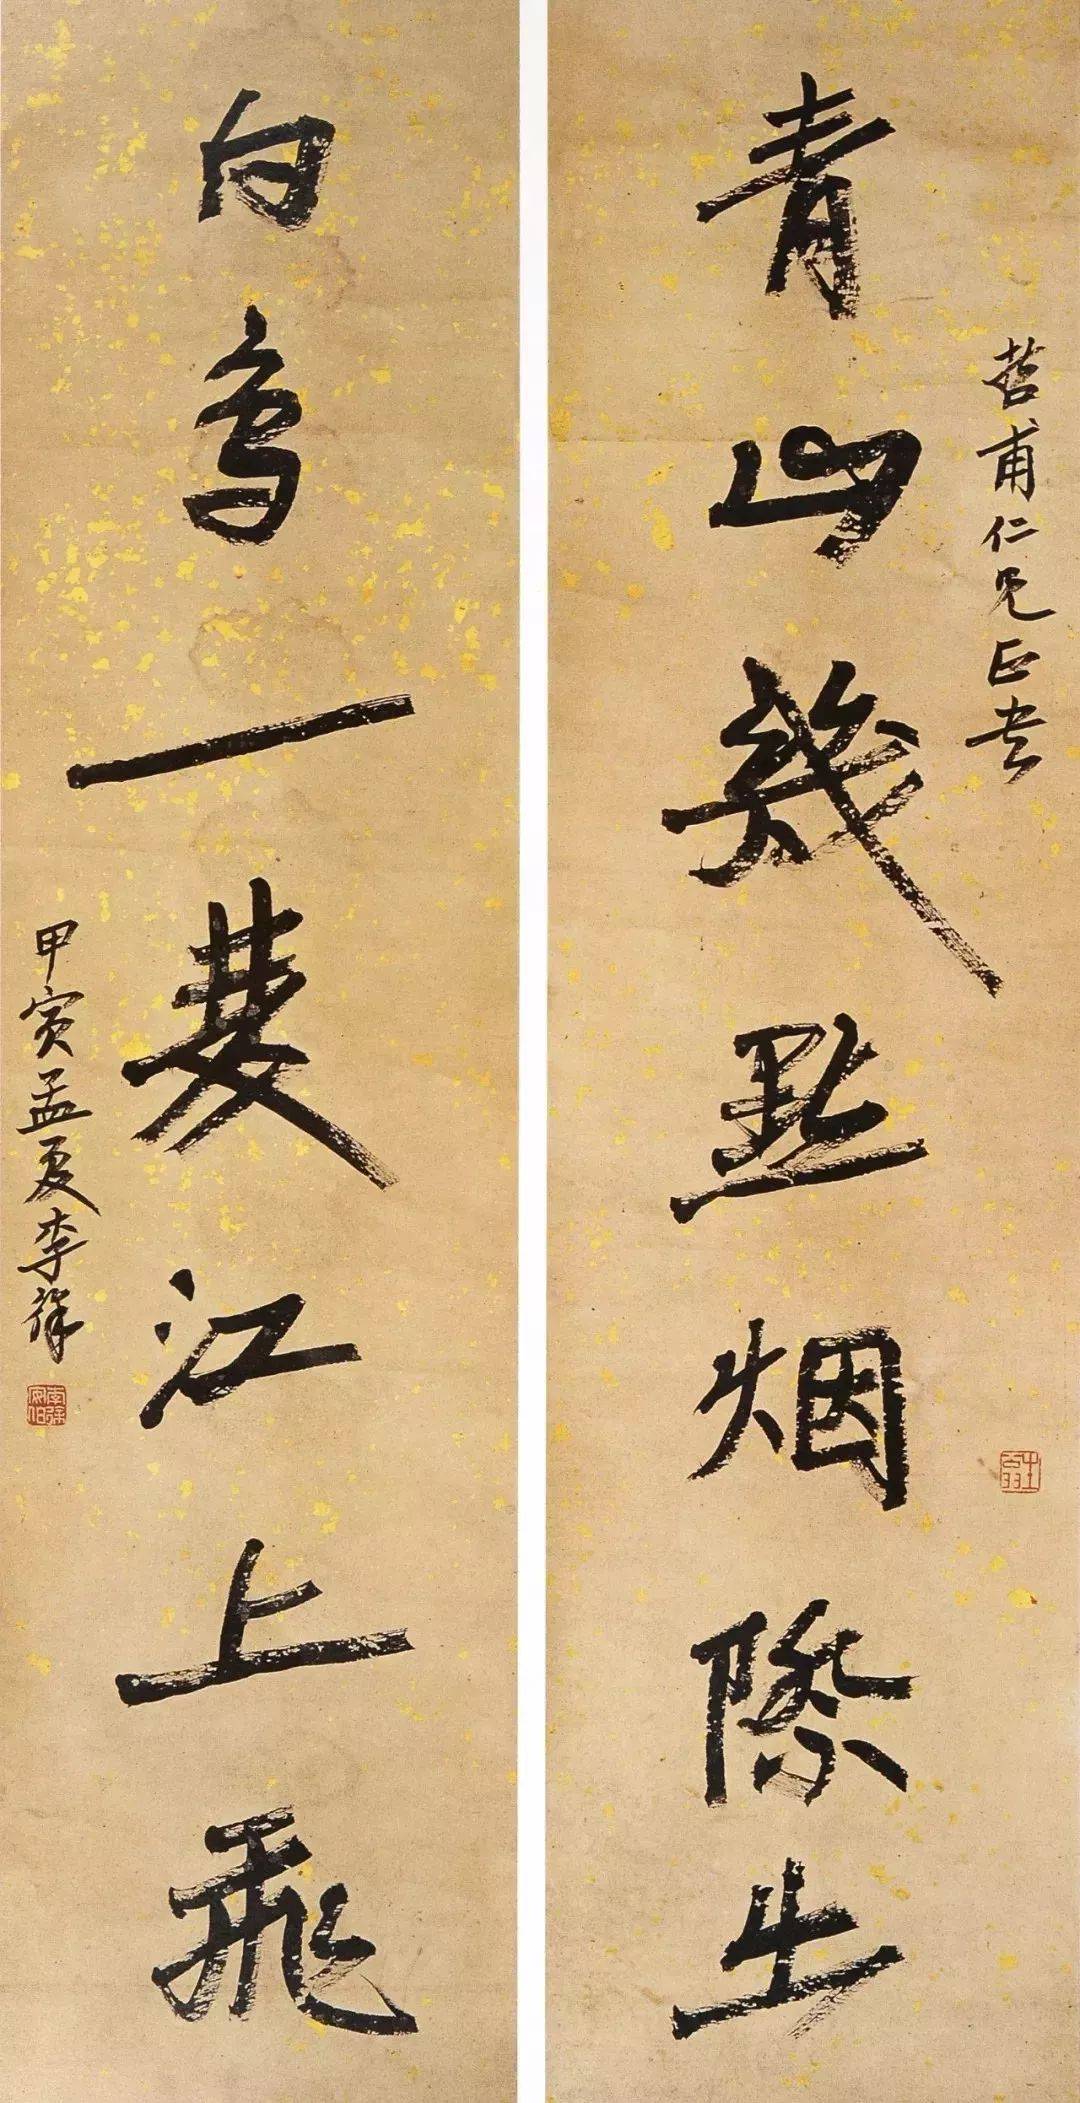 青山幾點烟際出
甫仁兄正
白鳥一雙江上飛
甲寅孟夏李